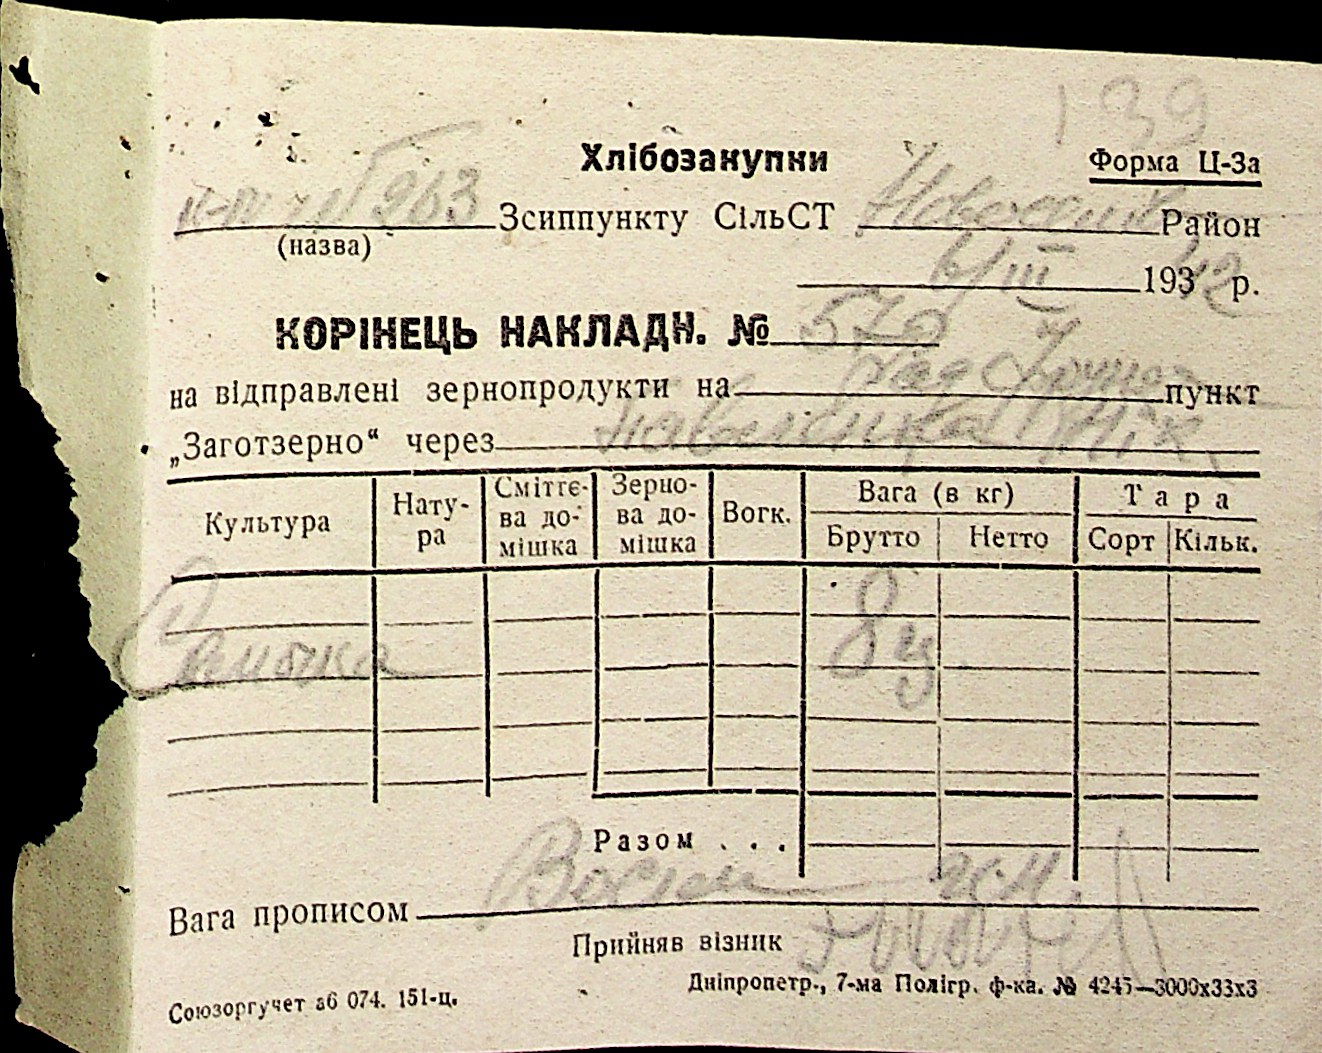 139
Хлібозакупки
Форма Ц-3а
№ 263 Зсиппункту СільСТ Район
(назва)
6/III 1942 р.
КОРІНЕЦЬ НАКЛАДН. №
на відправлені зернопродукти на пункт
„Заготзерно“ через
Культура Нату-ра Сміттє-ва до-мішка Зерно-ва до-мішка Вогк. Вага (в кг) Тара
Брутто Нетто Сорт Кільк.
8 ц
Разом . . .
Вага прописом Восем
Прийняв візник
Союзоргучет аб 074. 151-ц.
Дніпропетр., 7-ма Полігр. ф-ка. № 4245—3000х33х3